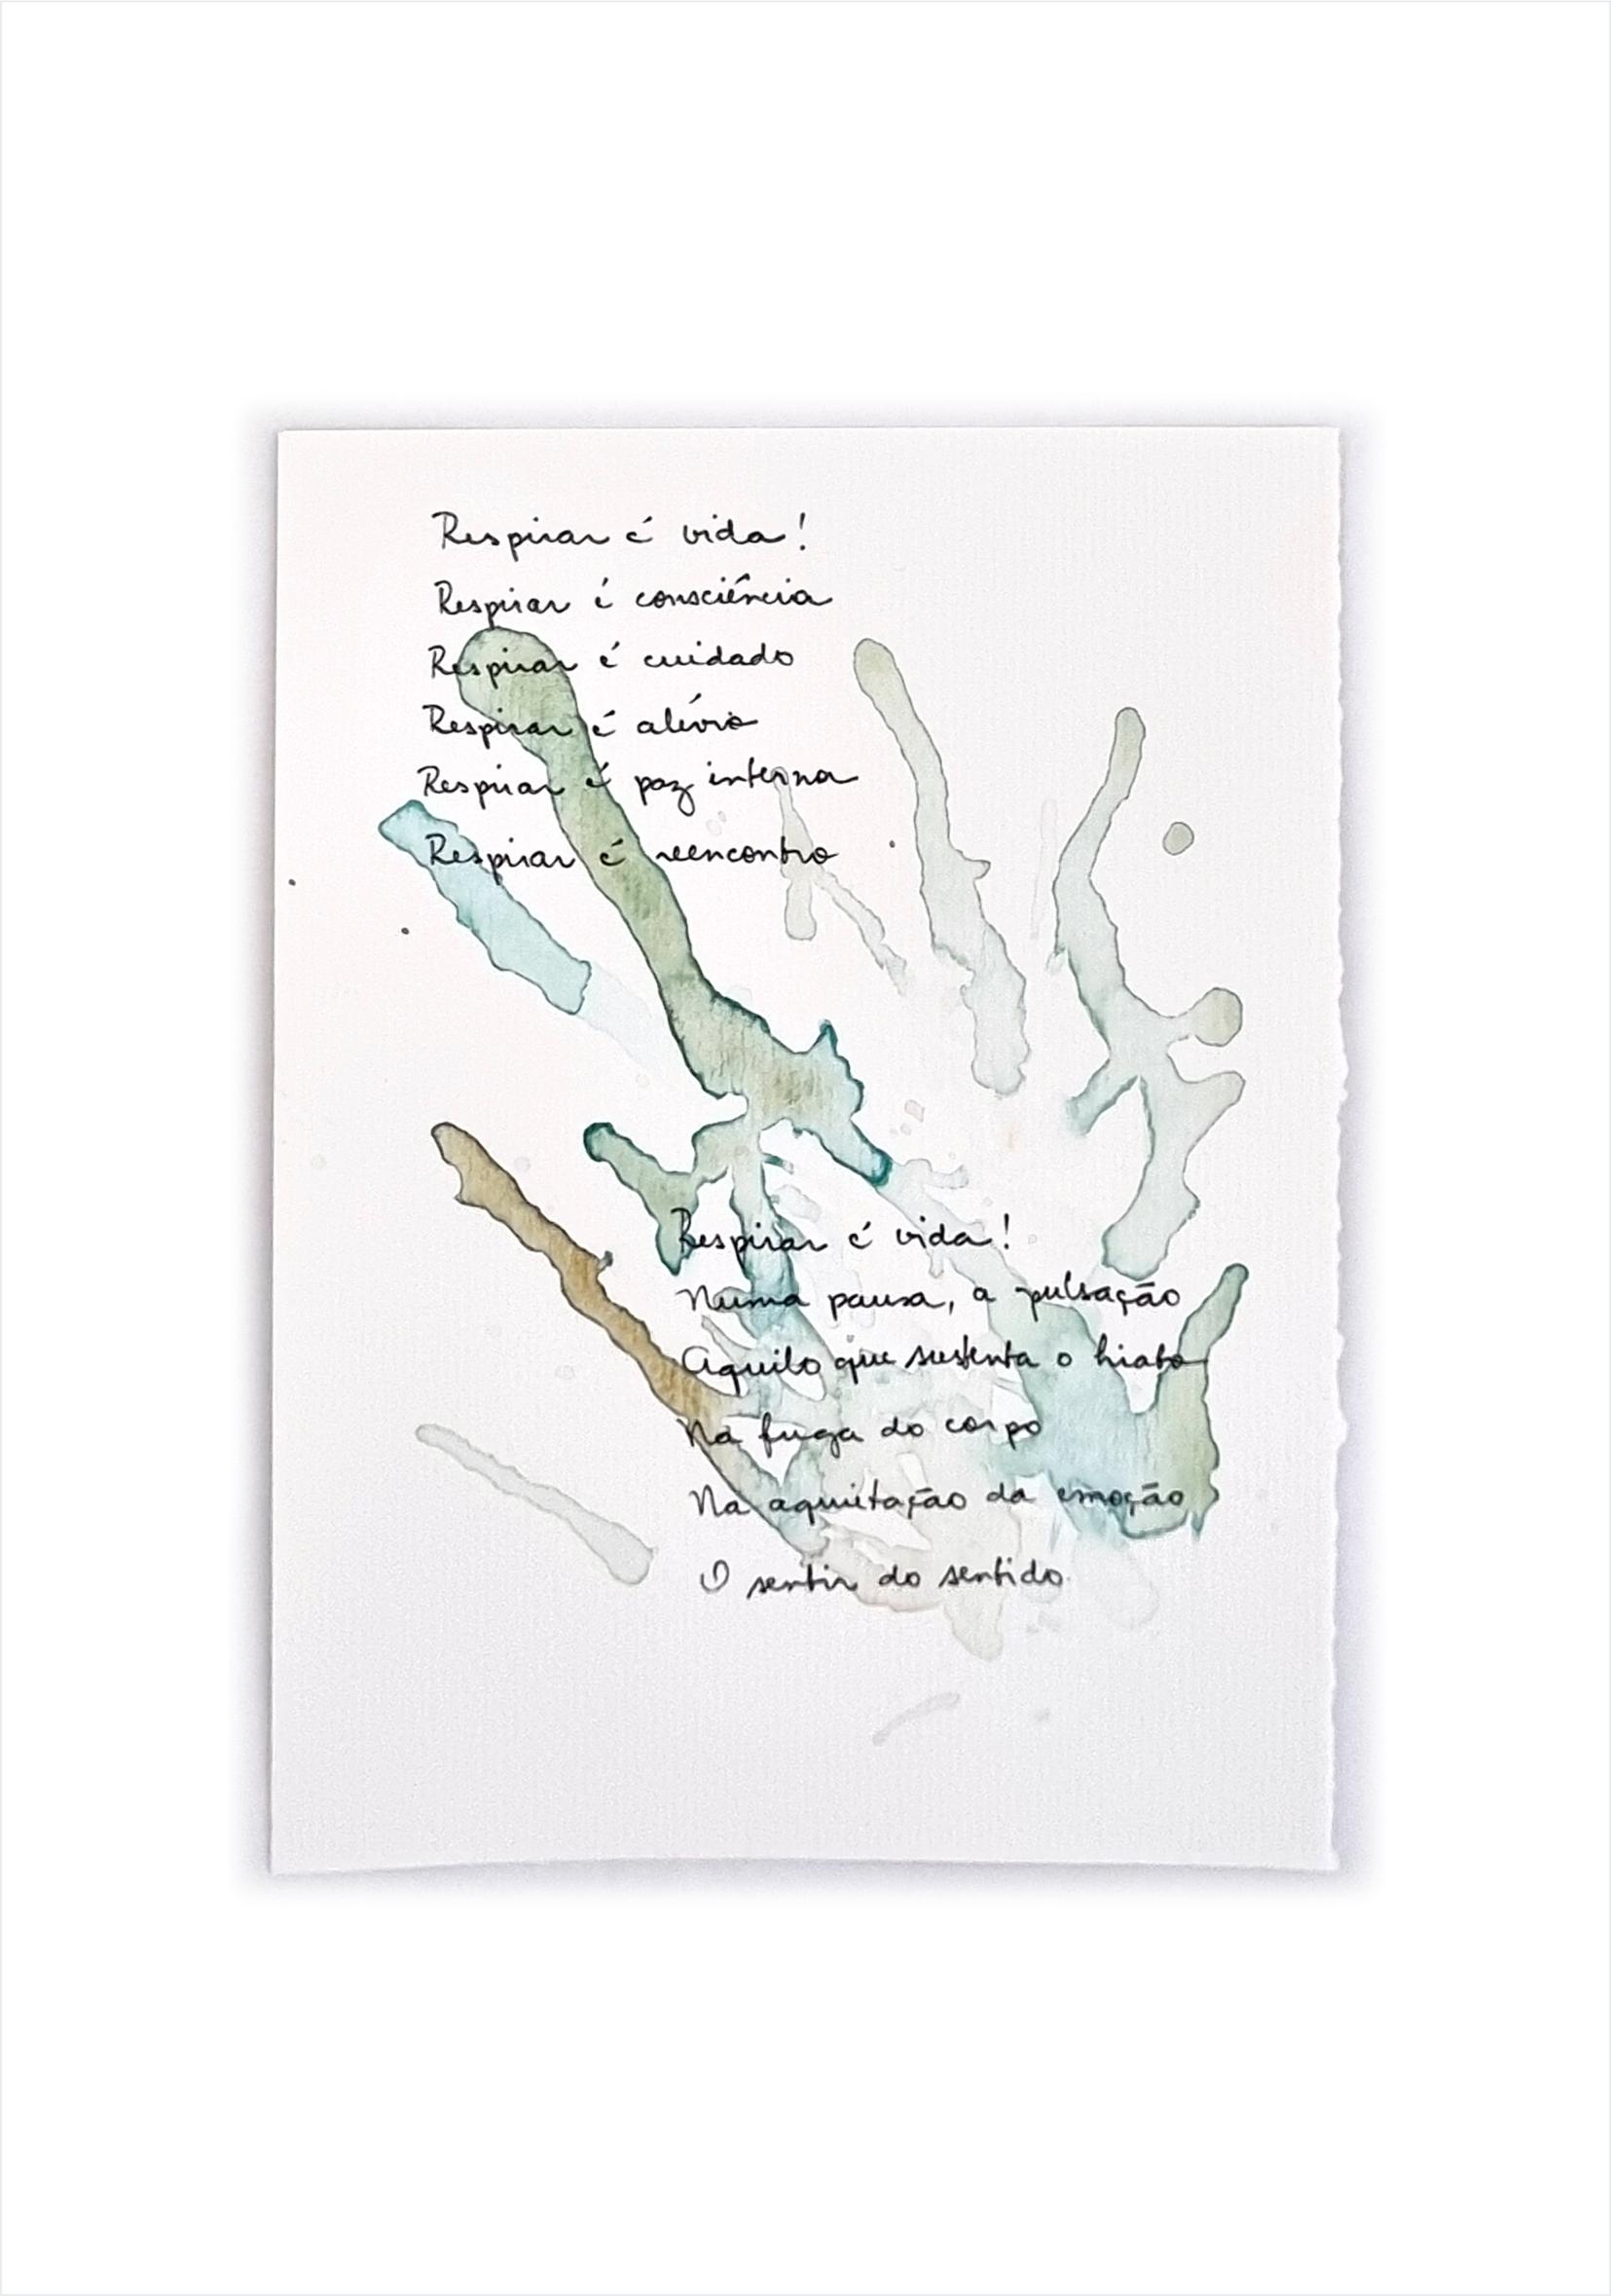 Respirar é vida!
Respirar é consciência
Respirar é cuidado
Respirar é alívio
Respirar é paz interna
Respirar é reencontro
Respirar é vida!
Numa pausa, a pulsação
Aquilo que sustenta o hiato
Na fuga do corpo
Na aquietação da emoção
O sentir do sentido